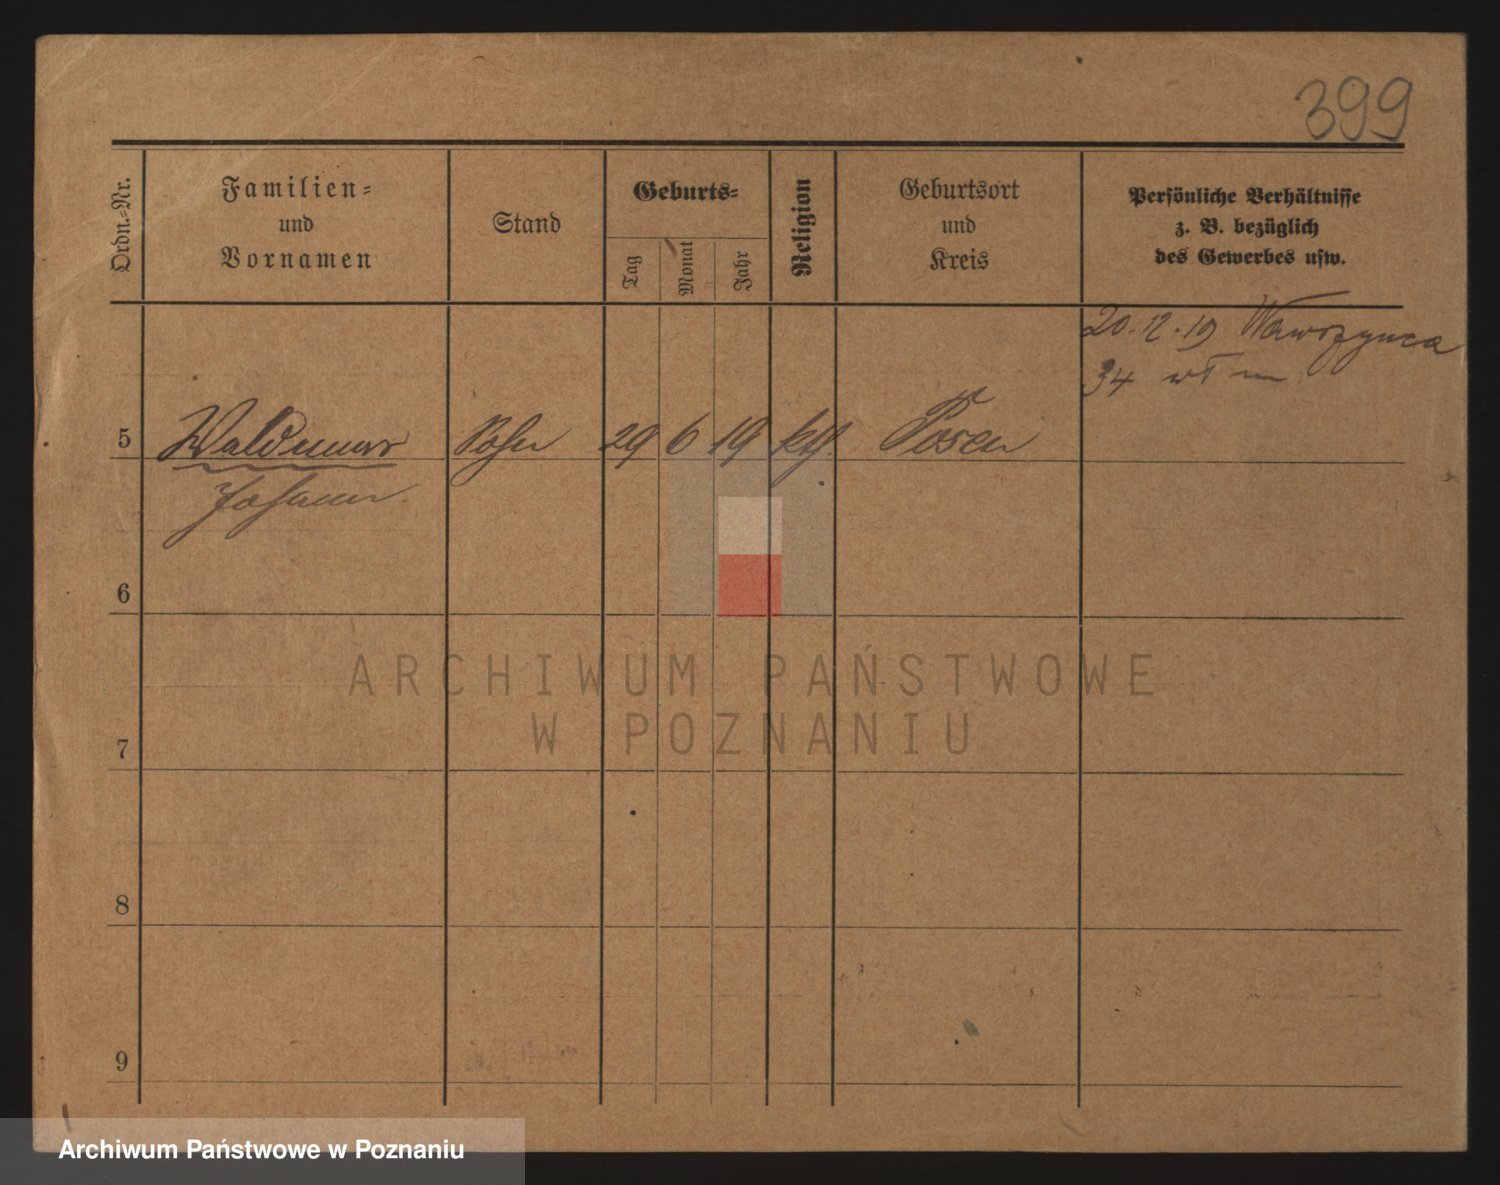 399
Ordn.-Nr.
Familien-
und
Vornamen
Stand
Geburts-
Tag
Monat
Jahr
Religion
Geburtsort
und
Kreis
Persönliche Verhältnisse
z. B. bezüglich
des Gewerbes usw.
20.12.19 Wawrzynca
34
5 Waldemar Sohn 29 6 19 kth. Posen
Johann
6
ARCHIWUM PAŃSTWOWE
W POZNANIU
7
8
9
Archiwum Państwowe w Poznaniu